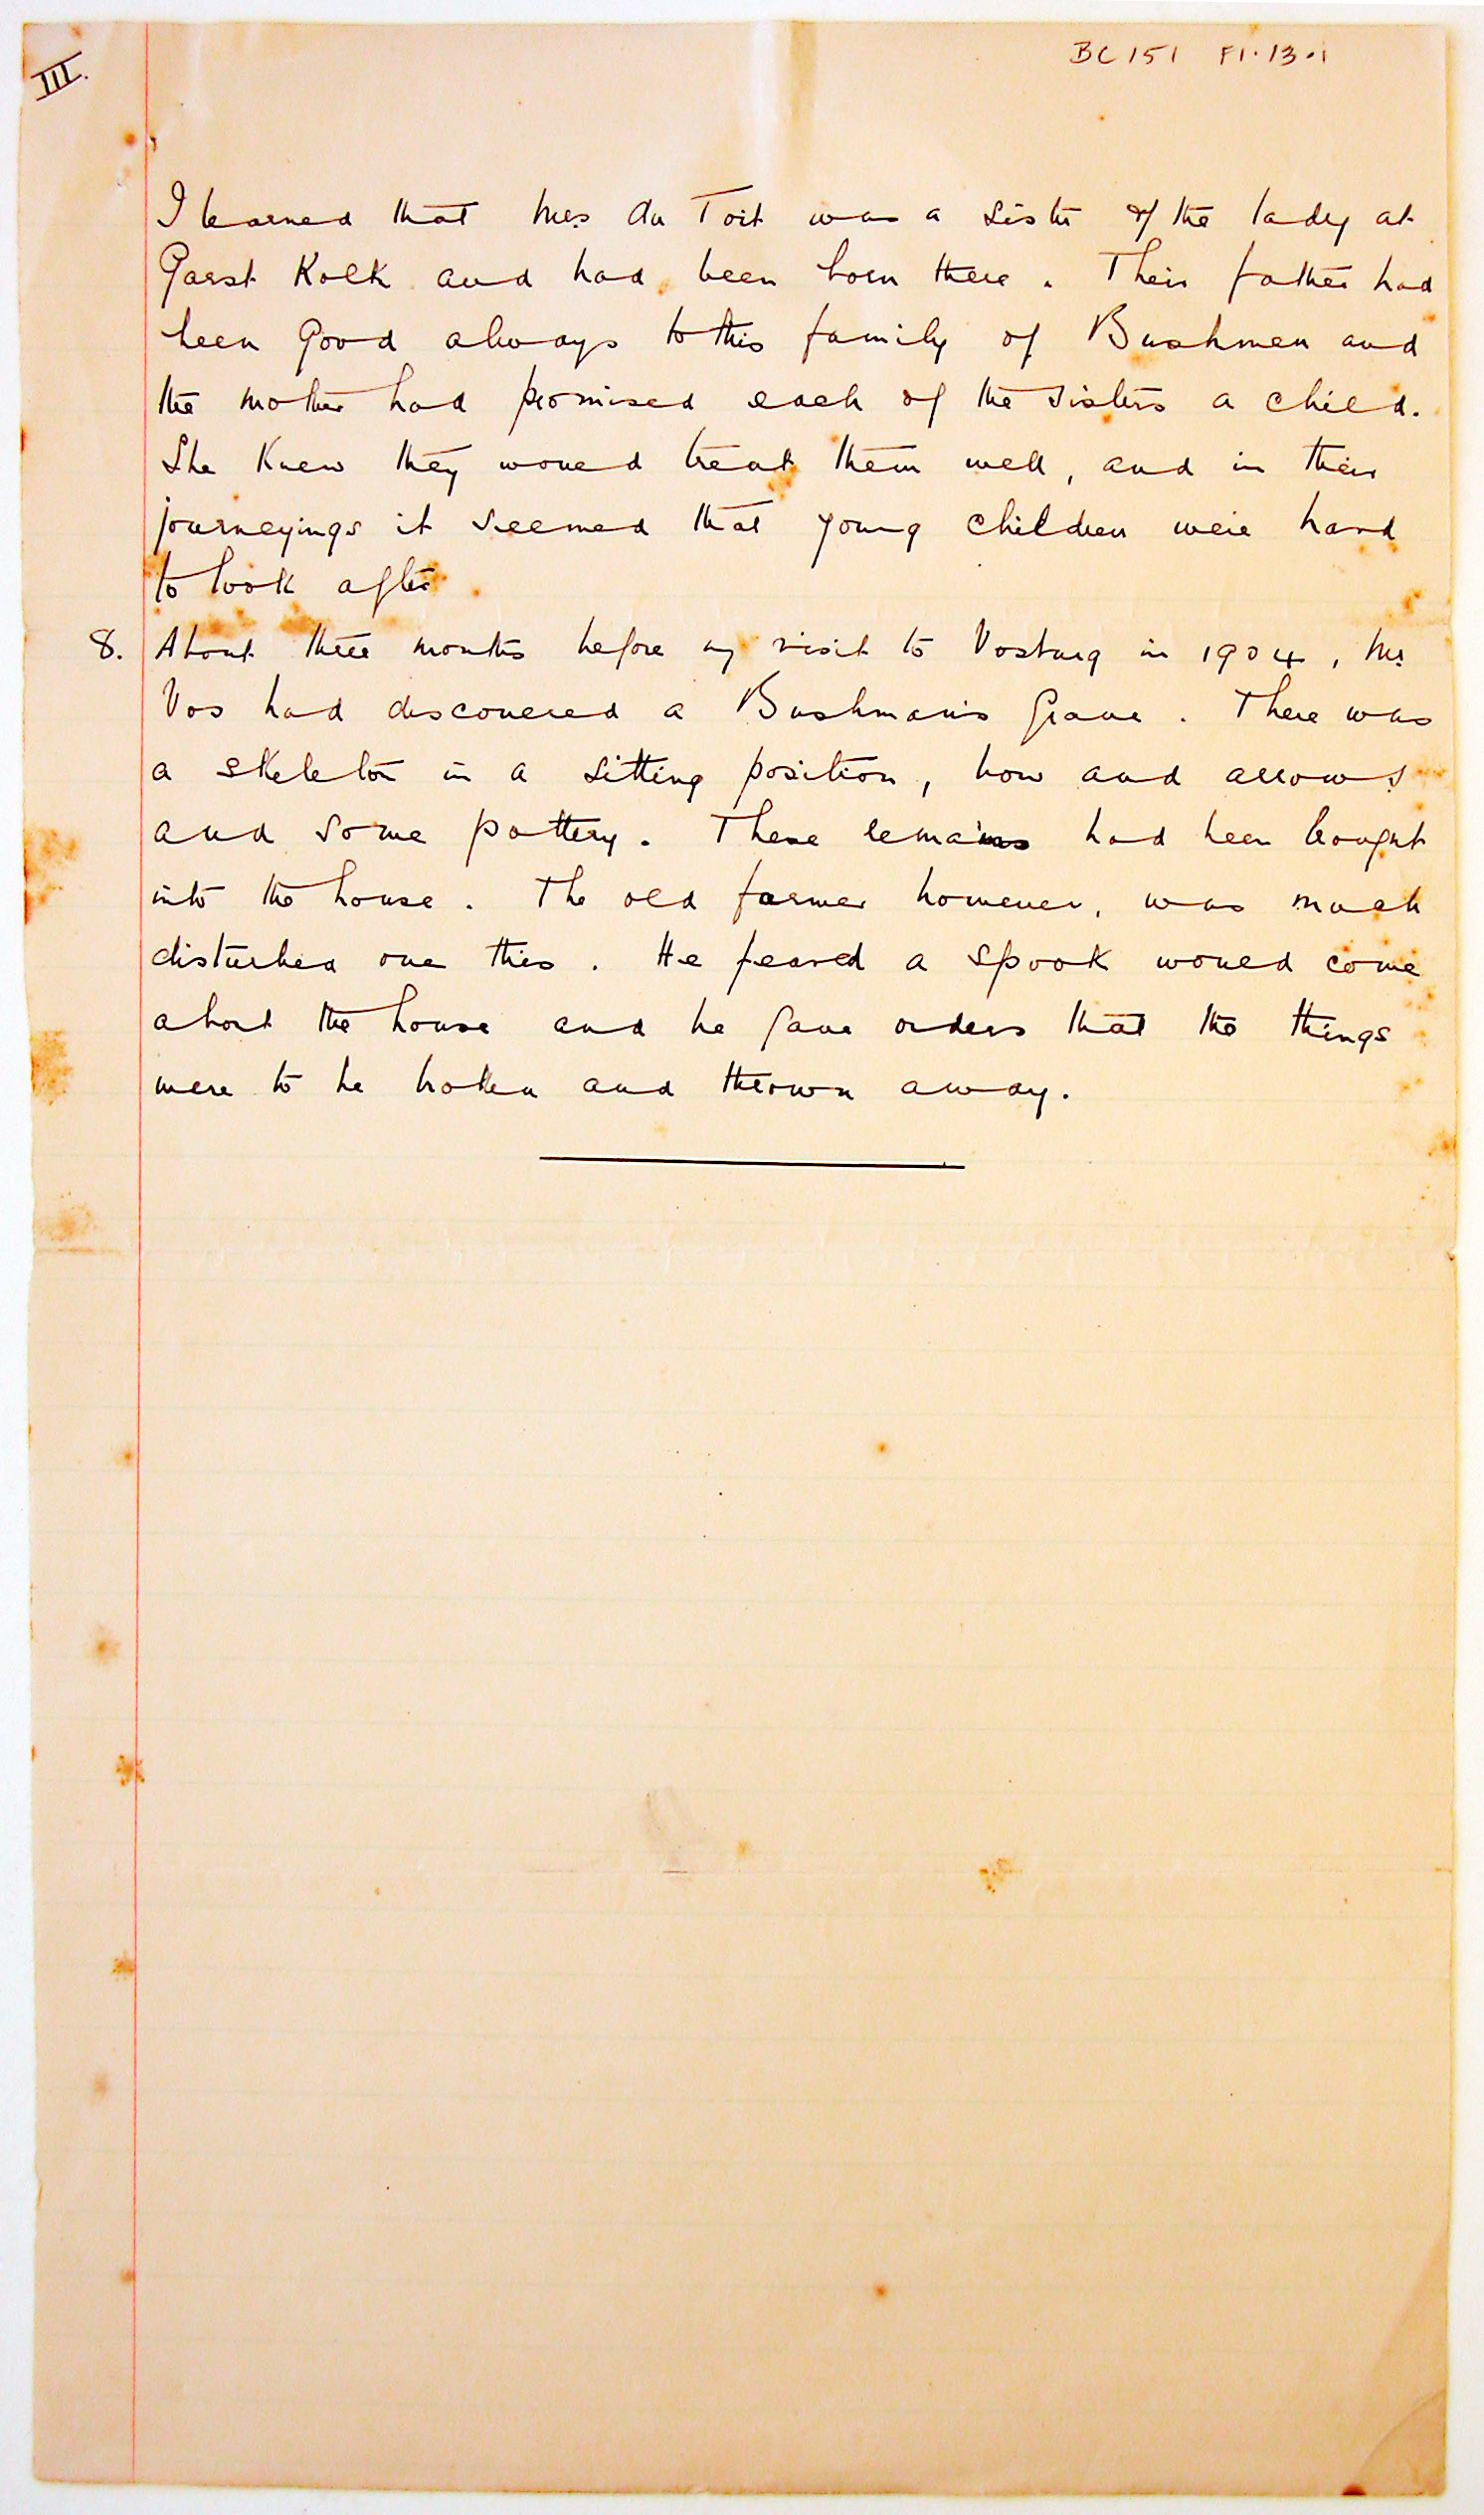 III.
BC 151 F1.13.1
I learned that Mrs du Toit was a sister of the lady at
Garst Kolk and had been born there. Their father had
been good always to this family of Bushmen and
the mother had promised each of the sisters a child.
She knew they would treat them well, and in their
journeyings it seemed that young children were hard
to look after.
8. About three months before my visit to Vosburg in 1904, Mr
Vos had discovered a Bushman's grave. There was
a skeleton in a sitting position, bow and arrows
and some pottery. These remains had been brought
into the house. The old farmer however, was much
disturbed over this. He feared a spook would come
about the house and he gave orders that the things
were to be broken and thrown away.